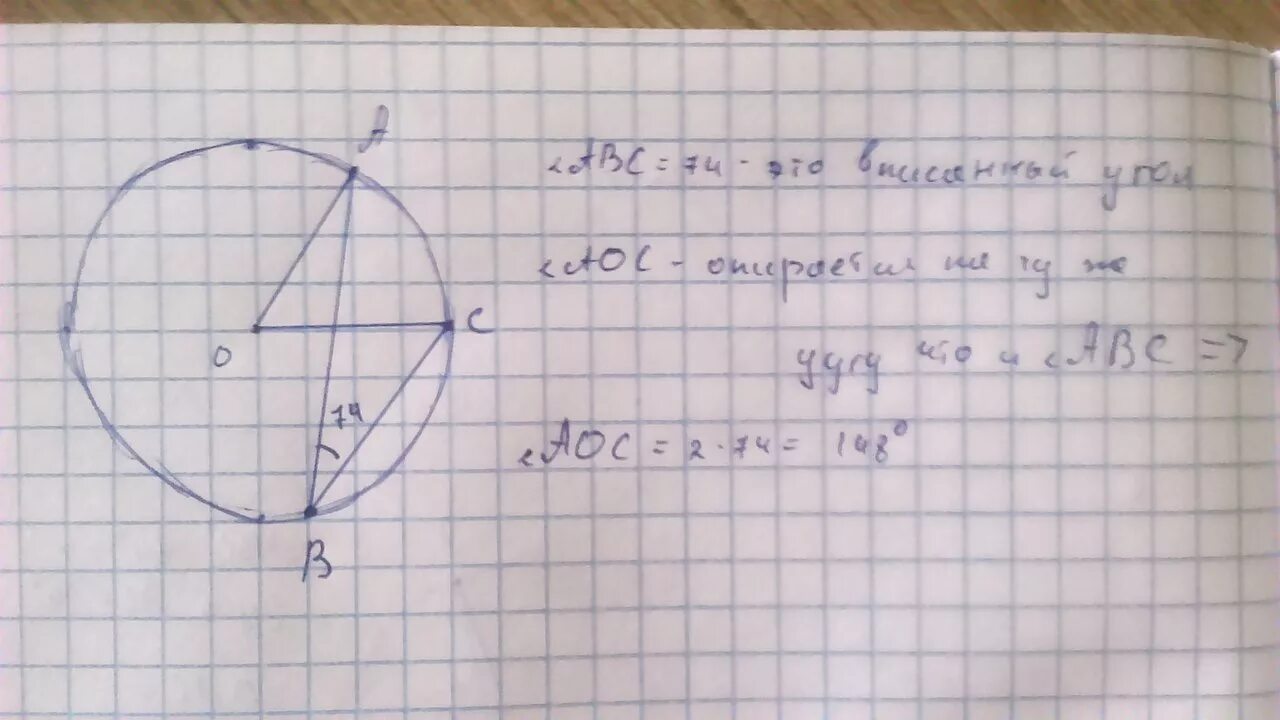 A
O
C
74
B
∠ABC = 74 - это вписанный угол
∠AOC - опирается на ту же
дугу что и ∠ABC =>
∠AOC = 2 · 74 = 148°